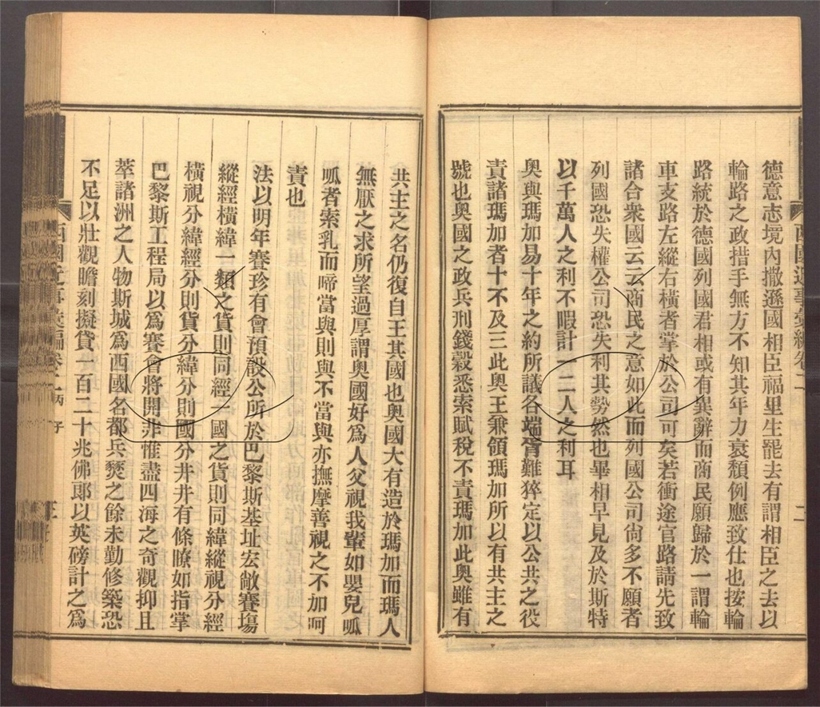 德意志境內撒遜國相臣福里生罷去有謂相臣之去以
輪路之政措手無方不知其年力衰頹例應致仕也按輪
路統於德國列國君相或有異辭而商民願歸於一謂輪
車支路左縱右橫者掌於公司可矣若衝途官路請先致
諸合衆國云云商民之意如此而列國公司尙多不願者
列國恐失權公司恐失利其勢然也畢相早見及於斯特
以千萬人之利不暇計一二人之利耳
奧與瑪加易十年之約所議各端胥難猝定以公共之役
責諸瑪加者十不及三此奧王兼領瑪加所以有共主之
號也奧國之政兵刑錢穀悉索賦稅不責瑪加此奧雖有
共主之名仍復自王其國也奧國大有造於瑪加而瑪人
無厭之求所望過厚謂奧國好爲人父視我輩如嬰兒呱
呱者索乳而啼當與則與不當與亦撫摩善視之不加呵
責也
法以明年賽珍有會預設公所於巴黎斯基址宏敞賽塲
縱經橫緯一類之貨則同經一國之貨則同緯縱視分經
橫視分緯經分則貨分緯分則國分井井有條瞭如指掌
巴黎斯工程局以爲賽會將開非惟盡四海之奇觀抑且
萃諸洲之人物斯城爲西國名都兵燹之餘未勤修築恐
不足以壯觀瞻刻擬貸一百二十兆佛郞以英磅計之爲
西國近事彙編卷